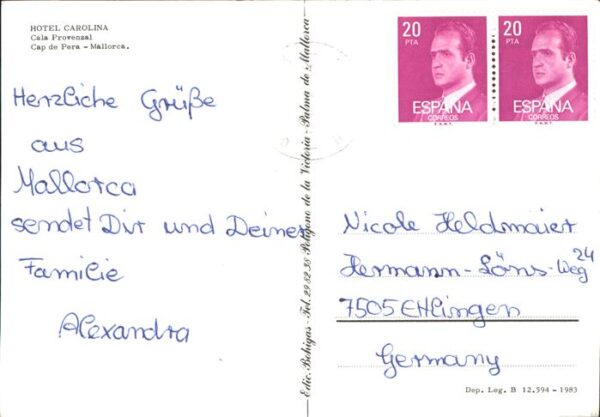 HOTEL CAROLINA
Cala Provenzal
Cap de Pera - Mallorca.
Herzliche Grüße
aus
Mallorca
sendet Dir und Deiner
Familie
Alexandra
Edic. Bohigas - Tel. 29 82 38 Peregrino de la Victoria - Palma de Mallorca
20
PTA
ESPAÑA
CORREOS
F.N.M.T.
20
PTA
ESPAÑA
CORREOS
F.N.M.T.
Nicole Heldmaier
Hermann-Löns-Weg 24
7505 Ettlingen
Germany
Dep. Leg. B 12.594 - 1983